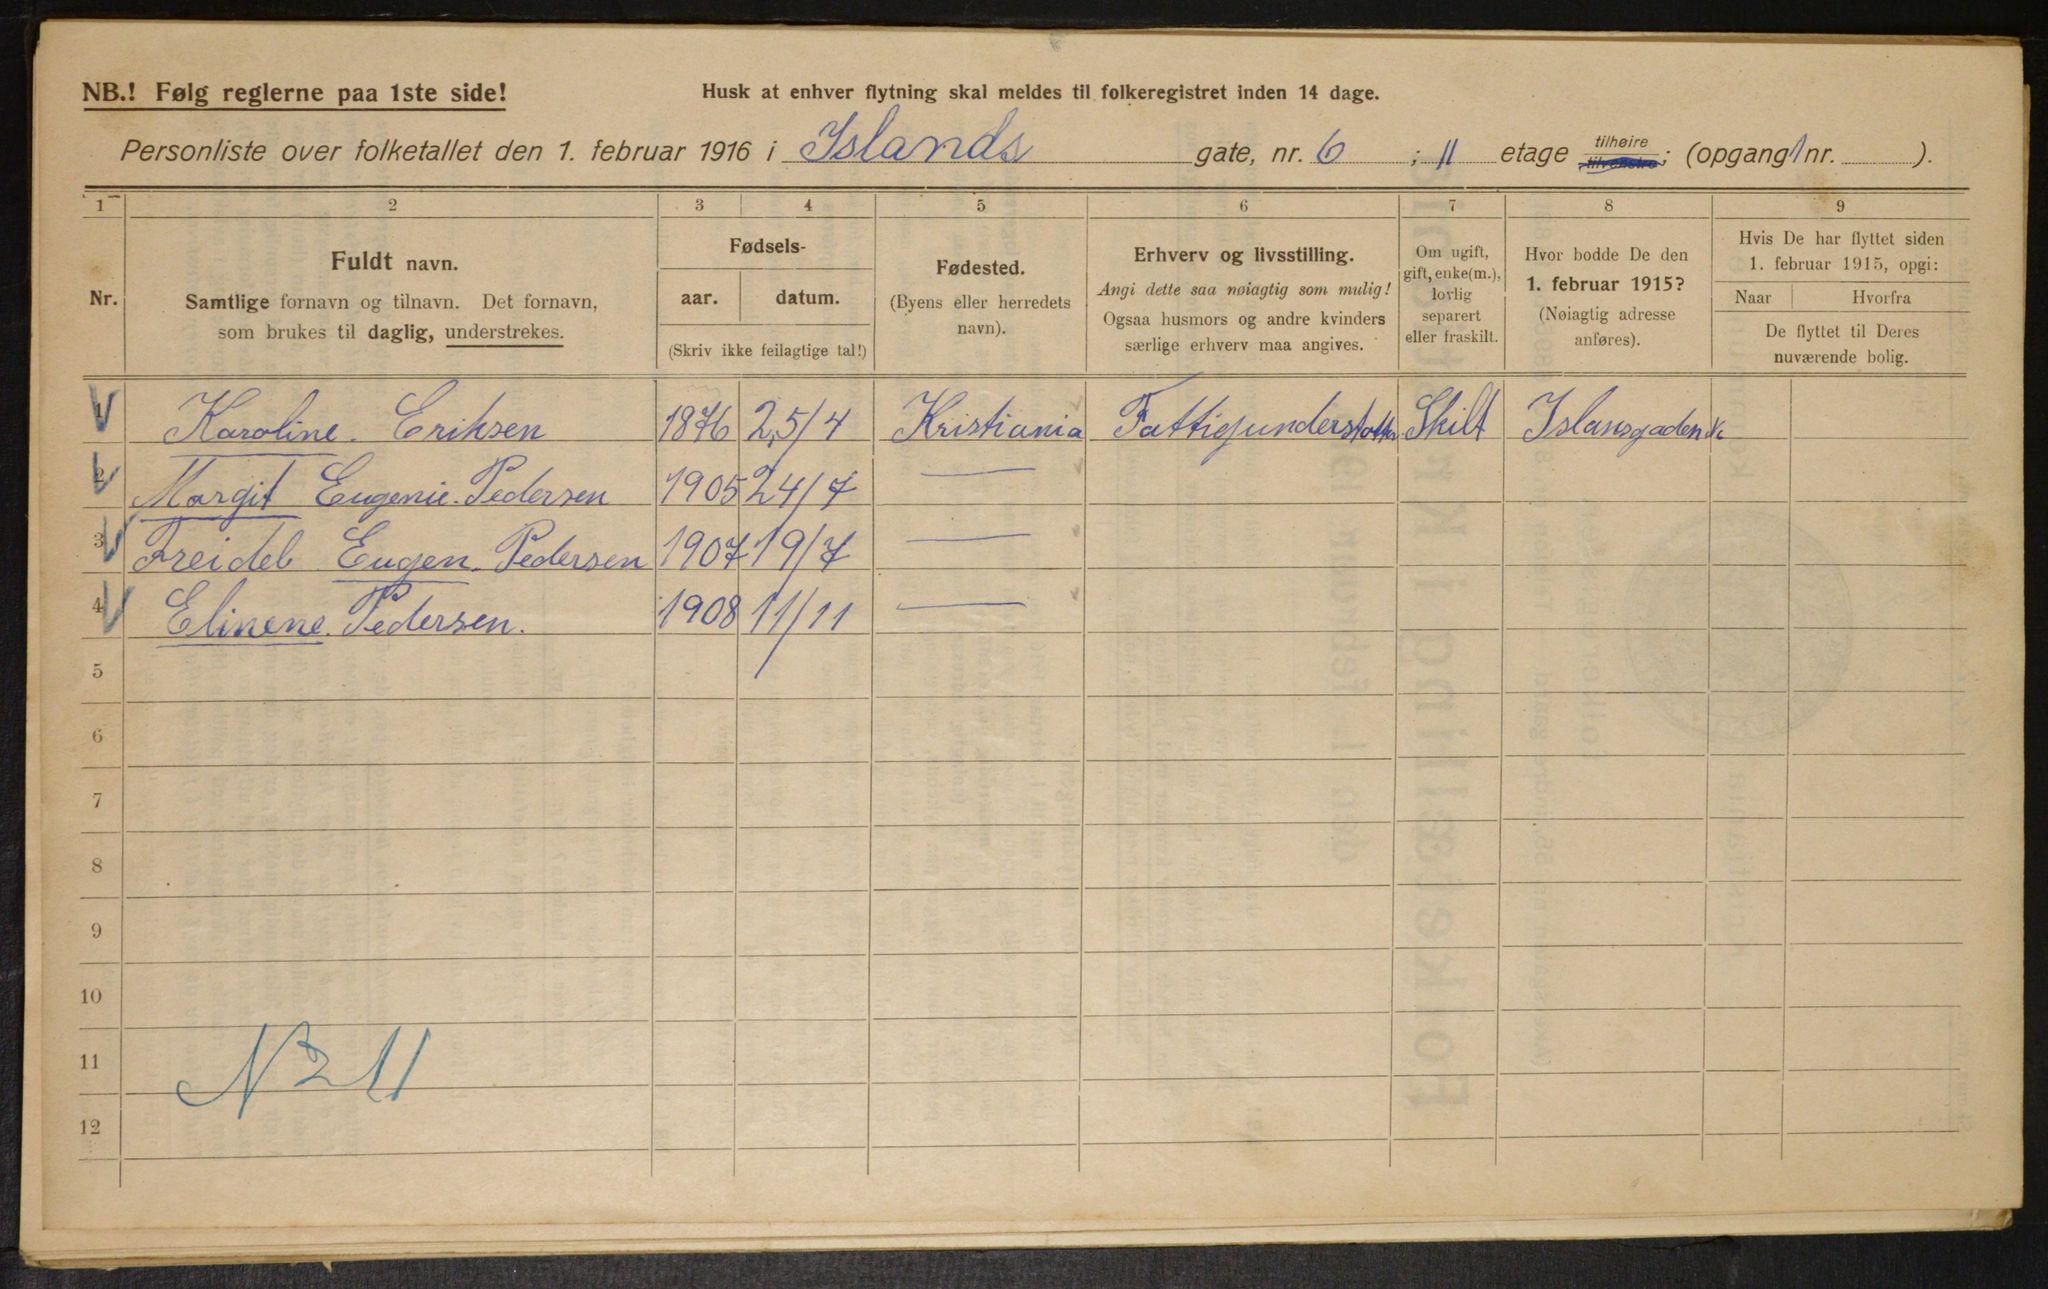 NB.! Følg reglerne paa 1ste side!
Husk at enhver flytning skal meldes til folkeregistret inden 14 dage.
Personliste over folketallet den 1. februar 1916 i Islands gate, nr. 6 ; II etage tilhøire tilvenstre; (opgang 1 nr. ).
1 2 3 4 5 6 7 8 9
Nr.
Fuldt navn.
Samtlige fornavn og tilnavn. Det fornavn,
som brukes til daglig, understrekes.
Fødsels-
aar. datum.
(Skriv ikke feilagtige tal!)
Fødested.
(Byens eller herredets
navn).
Erhverv og livsstilling.
Angi dette saa nøiagtig som mulig!
Ogsaa husmors og andre kvinders
særlige erhverv maa angives.
Om ugift,
gift, enke(m.),
lovlig
separert
eller fraskilt.
Hvor bodde De den
1. februar 1915?
(Nøiagtig adresse
anføres).
Hvis De har flyttet siden
1. februar 1915, opgi:
Naar Hvorfra
De flyttet til Deres
nuværende bolig.
1 Karoline. Eriksen 1876 25/4 Kristiania Fattigunderstøtte Skilt Islansgaden
2 Margit Eugenie. Pedersen 1905 24/7 —
3 Freidel Eugen. Pedersen 1907 19/7 —
4 Elinene. Pedersen. 1908 11/11 —
5
6
7
8
9
10
11
12
N 2 11